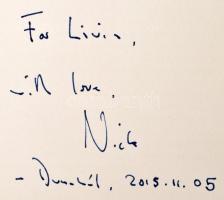 For Livia,
with love,
Nick
2015.11.05